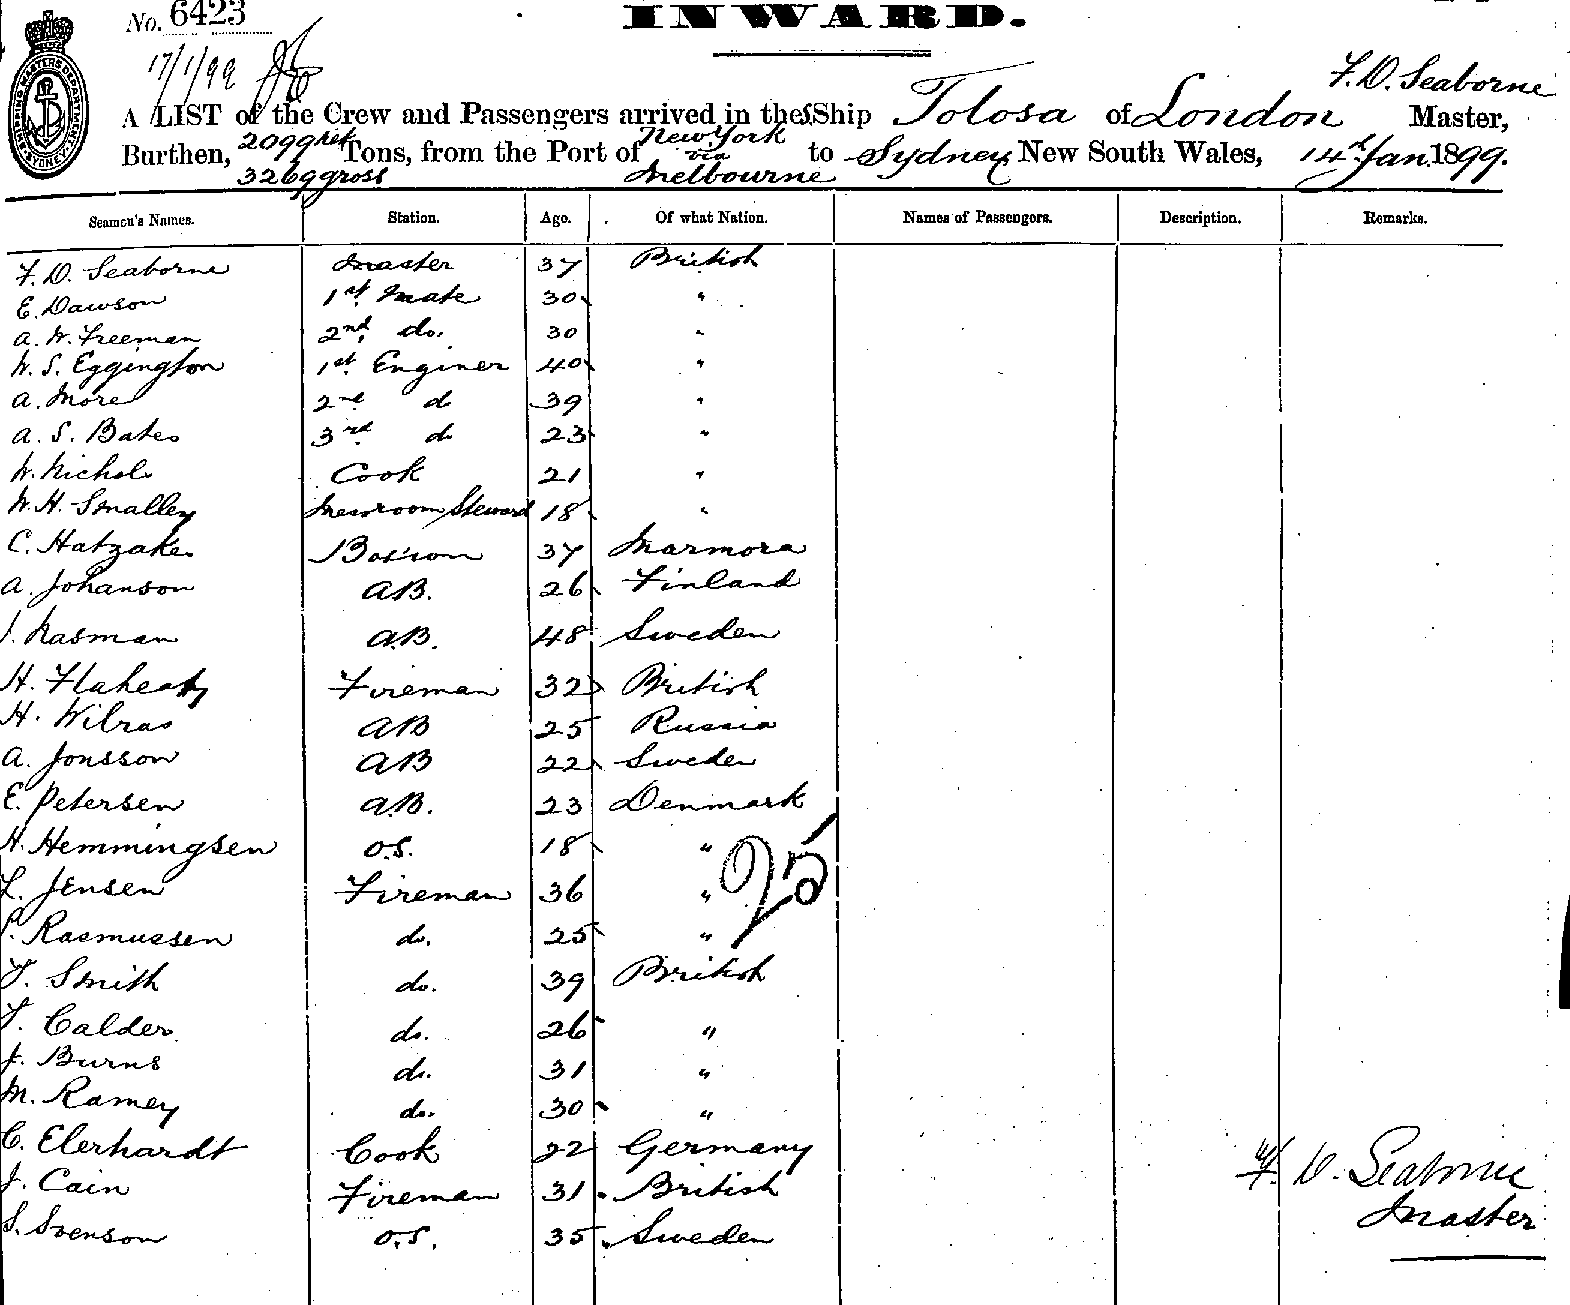 No. 6423
INWARD.
17/1/99
F. D. Seaborne
A LIST of the Crew and Passengers arrived in the SShip Tolosa of London Master,
Burthen, 2099 net Tons, from the Port of New York via Melbourne to Sydney New South Wales, 14th Jan. 1899.
3269 gross
SHIPPING MASTERS DEPARTMENT SYDNEY
Seamen's Names. Station. Age. Of what Nation. Names of Passengers. Description. Remarks.
F. D. Seaborne Master 37 British
E. Dawson 1st Mate 30 "
A. W. Freeman 2nd do. 30 "
W. S. Eggington 1st Enginer 40 "
A. More 2nd do 39 "
A. S. Bates 3rd do 23 "
W. Nichols Cook 21 "
W. H. Smalley Messroom Steward 18 "
C. Hatzakes Bos'son 37 Marmora
A. Johanson AB. 26 Finland
J. Nasman A.B. 48 Sweden
H. Flaherty Fireman 32 British
H. Wilras AB 25 Russia
A. Jonsson AB 22 Sweden
E. Petersen A.B. 23 Denmark
H. Hemmingsen O.S. 18 "
L. Jensen Fireman 36 "
Rasmussen do. 25 "
25
T. Smith do. 39 British
T. Calder. do. 26 "
J. Burns do. 31 "
M. Ramey do. 30 "
C. Elerhardt Cook 22 Germany
J. Cain Fireman 31 British
S. Svenson O.S. 35 " Sweden
F. D. Seaborne
Master